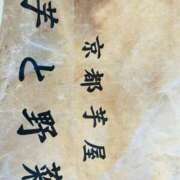 京都芋屋
芋と野菜